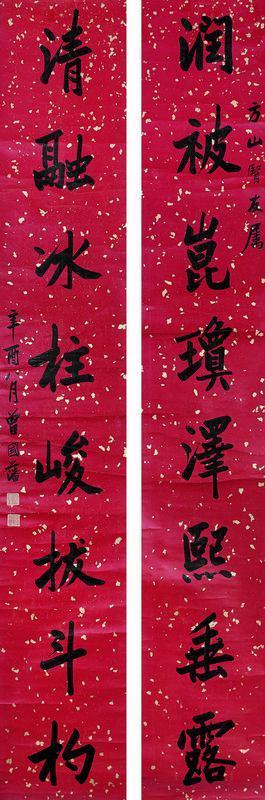 方山贤友属
润被崑琼泽熙垂露
清融冰柱峻拔斗杓
辛酉八月曾國藩